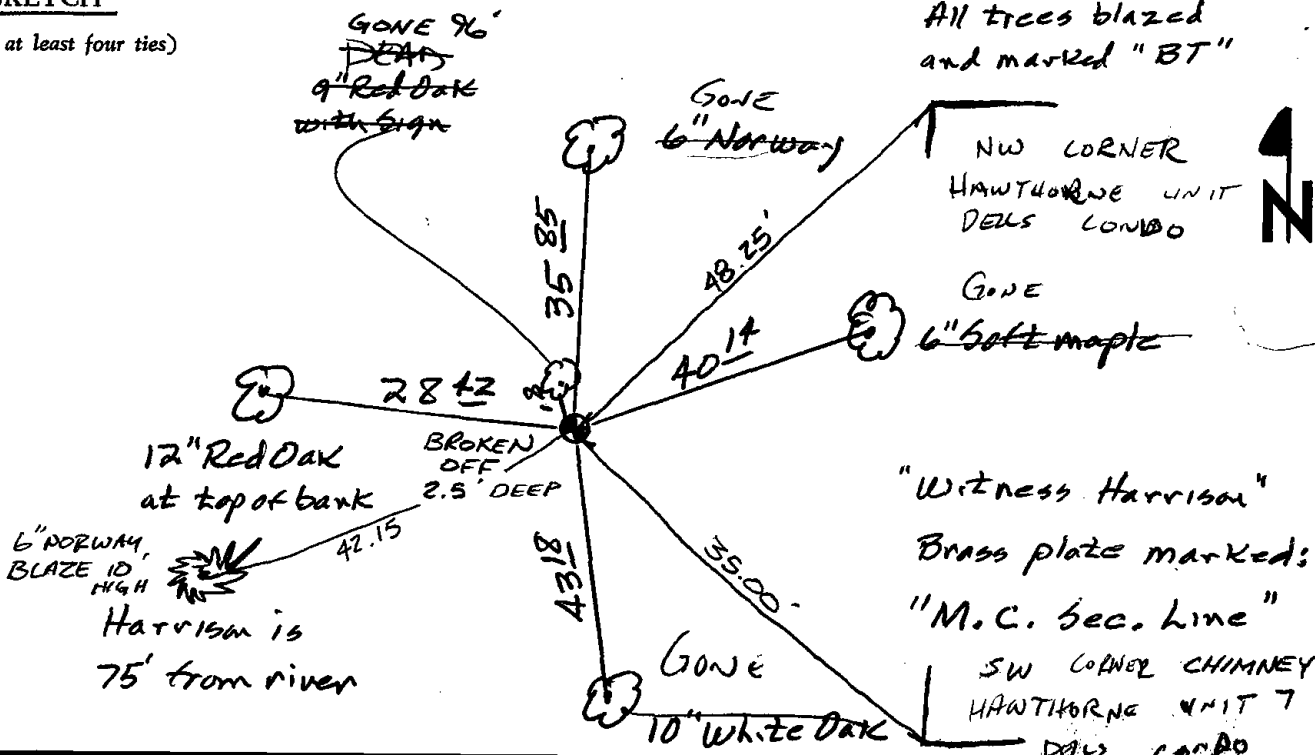 SKETCH
at least four ties)
GONE 96'
DEAD
9" Red Oak
with Sign
GONE
6" Norway
All trees blazed
and marked "BT"
NW CORNER
HAWTHORNE UNIT
DELLS CONDO
N
35 85
48.25'
GONE
6" Soft maple
40 14
28 42
12" Red Oak
at top of bank
BROKEN
OFF
2.5' DEEP
6" NORWAY,
BLAZE 10'
HIGH
42.15
Harrison is
75' from river
43 18
35.00
GONE
10" White Oak
"Witness Harrison"
Brass plate marked:
"M.C. Sec. Line"
SW CORNER CHIMNEY
HAWTHORNE UNIT 7
DELLS CONDO